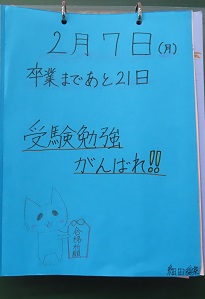 2月7日(月)
卒業まであと21日
受験勉強
がんばれ!!
合格祈願